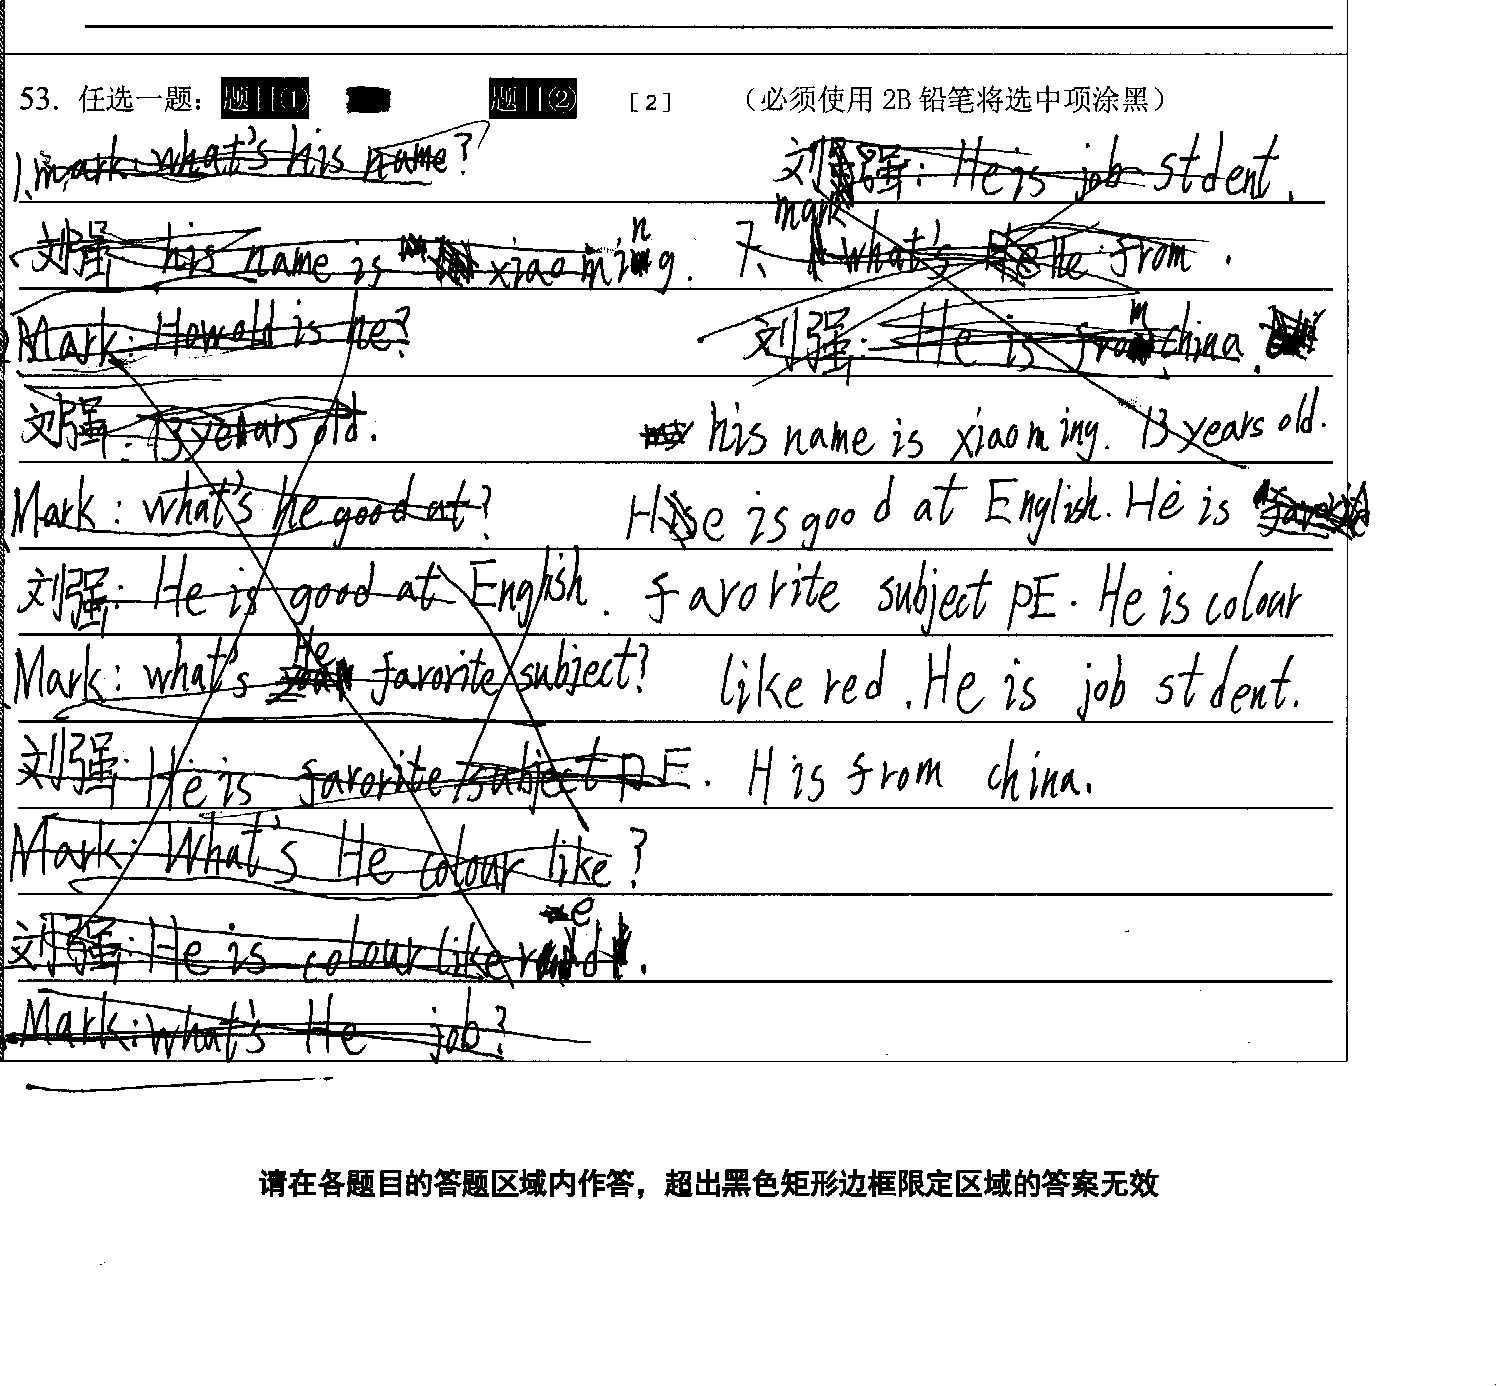 53. 任选一题： 题目① 题目② [2] （必须使用 2B 铅笔将选中项涂黑）
1. mark: what's his name?
刘强: his name is xiaoming.
Mark: How old is he?
刘强: 13 years old.
Mark: what's he good at?
刘强: He is good at English.
Mark: what's He favorite subject?
刘强: He is favorite subject PE.
Mark: What's He colour like?
刘强: He is colour like red.
Mark: what's He job?
刘强: He is job stdent.
7、 mark what's He from.
刘强: He is from china.
his name is xiaoming. 13 years old.
He is good at English. He is
favorite subject PE. He is colour
like red. He is job stdent.
H is from china.
请在各题目的答题区域内作答，超出黑色矩形边框限定区域的答案无效